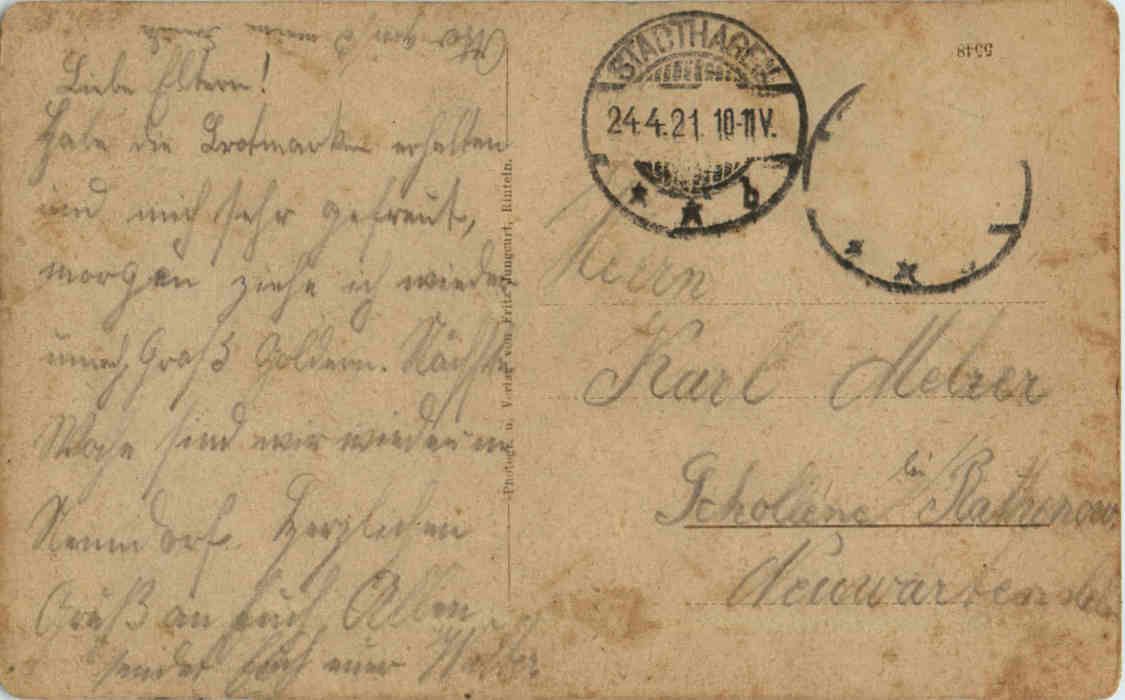 Liebe Eltern!
habe die Brotmarken erhalten
und mich sehr gefreut,
morgen ziehe ich wieder
Groß Goldern. Nächste
Woche sind wir wieder in
Nenndorf. Herzlichen
Gruß an Euch Allen
sendet Euch euer Walter.
Photogr. u. Verlag von Fritz Jungcurt, Rinteln.
STADTHAGEN
24.4.21. 10-11V.
* * b
5548
Herrn
Karl Melzer
Schollene bei Rathenow